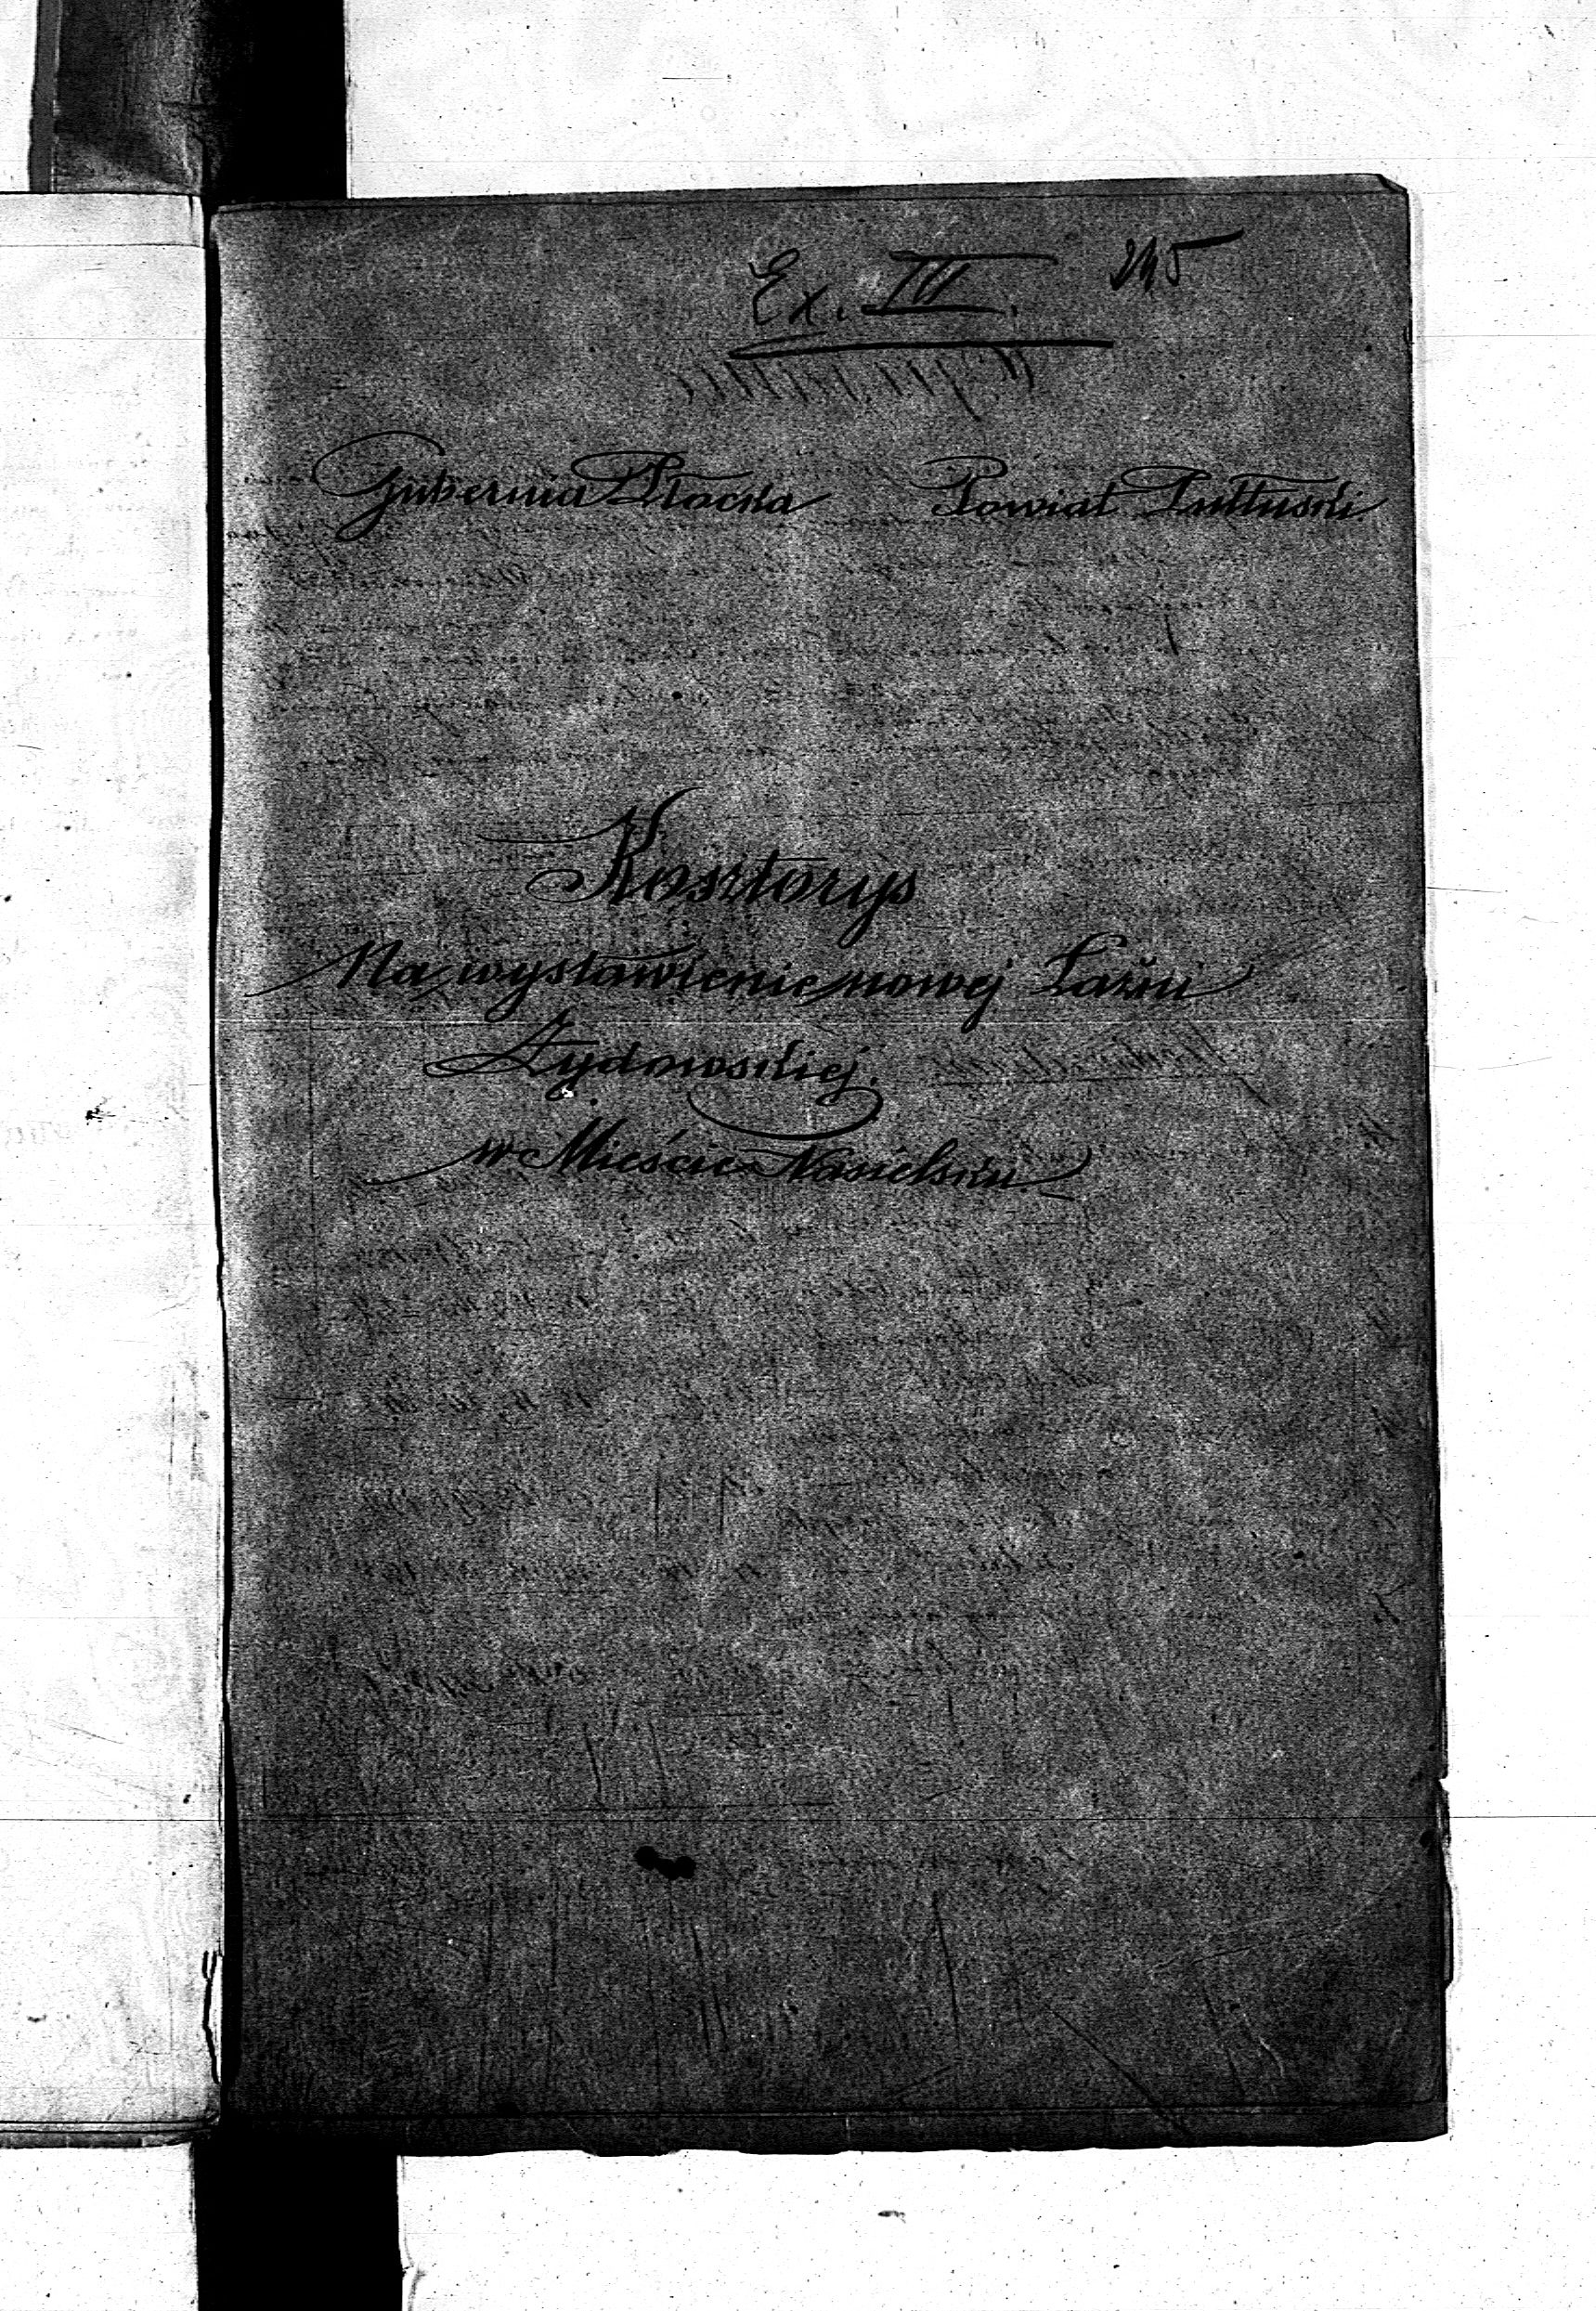 Ex. IV. 245
Gubernia Płocka Powiat Pułtuski.
Kosztorys
Na wystawienie nowej Łaźni
Żydowskiej.
w Mieście Nasielsku.